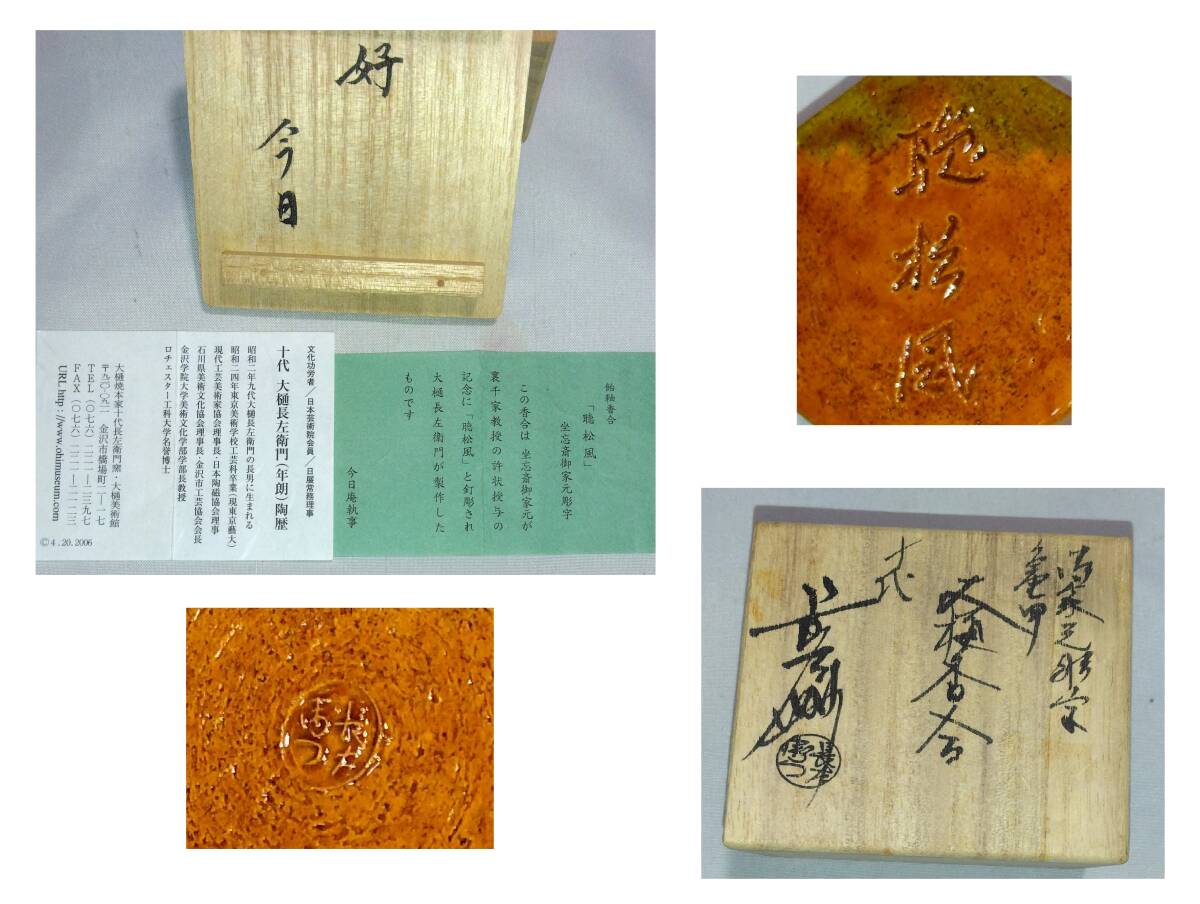 好
今日
文化功労者/日本芸術院会員/日展常務理事
十代 大樋長左衛門(年朗)陶歴
昭和二年九代大樋長左衛門の長男に生まれる
昭和二四年東京美術学校工芸科卒業(現東京藝大)
現代工芸美術家協会理事長・日本陶磁協会理事
石川県美術文化協会理事長・金沢市工芸協会会長
金沢学院大学美術文化学部学部長教授
ロチェスター工科大学名誉博士
大樋焼本家十代長左衛門窯・大樋美術館
金沢市橋場町二―一七
TEL(〇七六)二二一―二三九七
FAX(〇七六)二二一―二一二三
URL http://www.ohimuseum.com
© 4.20.2006
飴釉香合
「聴松風」
坐忘斎御家元彫字
この香合は 坐忘斎御家元が
裏千家教授の許状授与の
記念に「聴松風」と釘彫され
大樋長左衛門が製作した
ものです
今日庵執事
聴松風
亀甲
大樋香合
十代
長左衛門